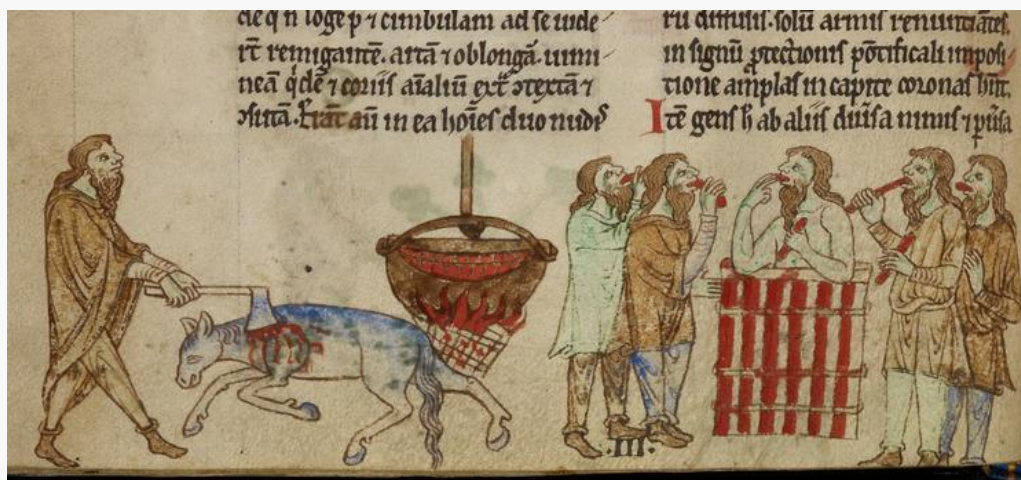 de q̄ n̄ loge p⁊ cimbulam ad se uide
rt̄ remigantē. artā ⁊ oblongā. uimi
neā q̇dē ⁊ coriis aīaliū ext̄ ↄtextā ⁊
ↄsutā. Erāt aū in ea hoīes duo nudis
rū dimisi. solū armis renuntiātes.
in signū ꝓtectionis pōtificali imposi
tione amplas in capite coronas hn̄t.
Itē gens h̄ ab aliis diūsa nimis ⁊ ꝑūsa
.III.